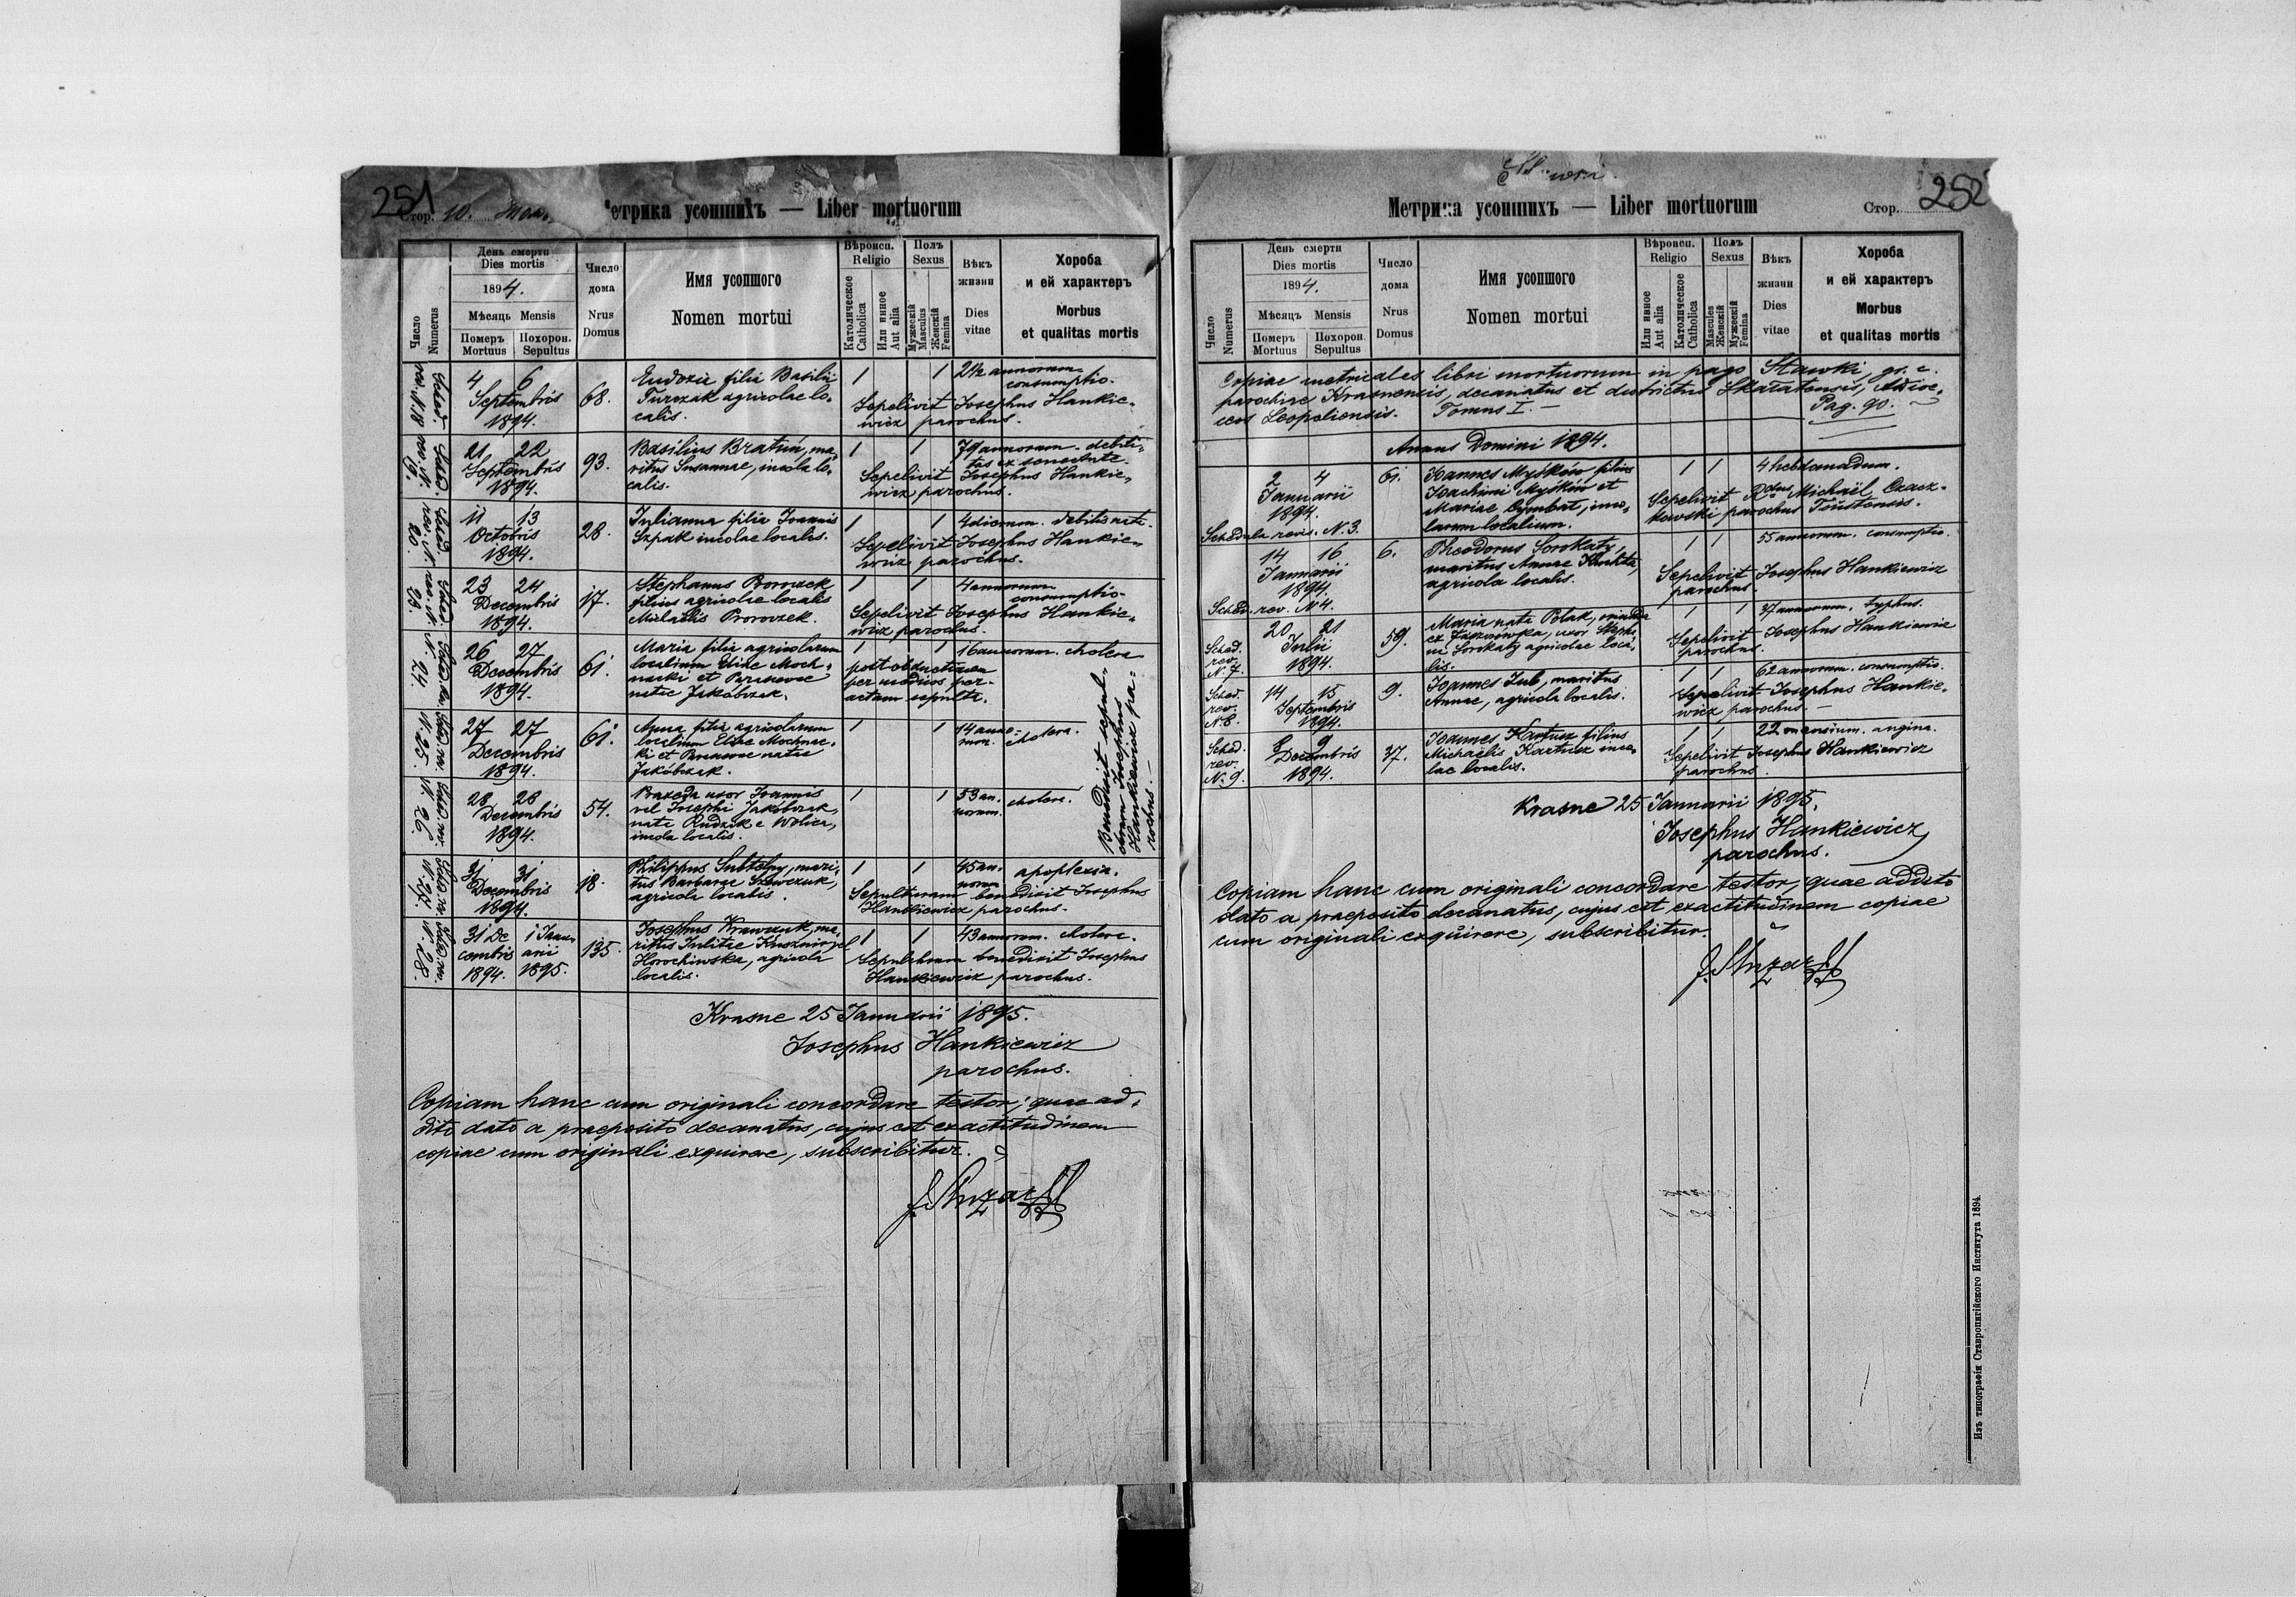 251
Стор. 10.
Метрика усопшихъ — Liber mortuorum
Число
Numerus
День смерти
Dies mortis
1894.
Мѣсяць Mensis
Померъ Похорон.
Mortuus Sepultus
Число
дома
Nrus
Domus
Имя усопшого
Nomen mortui
Вѣроисп.
Religio
Католическое
Catholica
Или инное
Aut alia
Полъ
Sexus
Мужескій
Masculus
Женскій
Femina
Вѣкъ
жизни
Dies
vitae
Хороба
и ей характеръ
Morbus
et qualitas mortis
Sched.
rev. N. 18
4 6
Septembris
1894.
68.
Eudoxia filia Basilii
Turczak agricolae lo-
calis.
1 1
2½ annorum
consumptio.
Sepelivit Josephus Hankie-
wicz parochus.
Sched.
rev. N.
19.
21 22
Septembris
1894.
93.
Basilius Bratuń, ma-
ritus Susannae, incola lo-
calis.
1 1
79 annorum. debili-
tas ex senectute.
Sepelivit Josephus Hankie-
wicz parochus.
Sched.
rev. N.
20.
11 13
Octobris
1894.
28.
Julianna filia Joannis
Szpak incolae localis.
1 1
4 dierum. debilis nata.
Sepelivit Josephus Hankie-
wicz parochus.
Sched.
rev. N.
23.
23 24
Decembris
1894.
17.
Stephanus Borowzek
filius agricolae localis
Michaelis Borowzek.
1 1
4 annorum
consumptio
Sepelivit Josephus Hankie-
wicz parochus.
N. 24.
26 27
Decembris
1894.
61.
Maria filia agricolarum
localium Eliae Moch-
nacki et Parascevae
natae Jakóbczak.
1 1
16 annorum. cholera
post obductionem
per medicos per-
actam sepulta.
N. 25.
27 27
Decembris
1894.
61.
Anna filia agricolarum
localium Eliae Mochnac-
ki et Parascevae natae
Jakóbczak.
1 1
14 anno-
rum.
cholera.
N. 26.
28 28
Decembris
1894.
54.
Praxeda uxor Joannis
vel Josephi Jakóbczak,
nata Rudzik e Wolica,
incola localis.
1 1
53 an-
norum.
cholera.
Benedixit sepul-
chrum Josephus
Hankiewicz pa-
rochus.
N. 27.
31 31
Decembris
1894.
18.
Philippus Subtelny, mari-
tus Barbarae Szewczuk,
agricola localis.
1 1
45 an-
norum
apoplexia.
Sepulturam benedixit Josephus
Hankiewicz parochus.
N. 28.
31 De- 1 Janu-
cembris arii
1894. 1895.
135.
Josephus Krawczuk, ma-
ritus Julitae Kusznir vel
Horochiwska, agricola
localis.
1 1
43 annorum. cholera.
Sepulchrum benedixit Josephus
Hankiewicz parochus.
Krasne 25 Januarii 1895.
Josephus Hankiewicz
parochus.
Copiam hanc cum originali concordare testor, quae ad-
dito dato a praeposito decanatus, cujus est exactitudinem
copiae cum originali exquirere, subscribitur.
252
Метрика усопшихъ — Liber mortuorum
Стор.
Число
Numerus
День смерти
Dies mortis
1894.
Мѣсяць Mensis
Померъ Похорон.
Mortuus Sepultus
Число
дома
Nrus
Domus
Имя усопшого
Nomen mortui
Вѣроисп.
Religio
Или инное
Aut alia
Католическое
Catholica
Полъ
Sexus
Masculus
Женскій
Мужескій
Femina
Вѣкъ
жизни
Dies
vitae
Хороба
и ей характеръ
Morbus
et qualitas mortis
Copiae metricales libri mortuorum in pago Stawki, gr. c.
parochiae Krasnensis, decanatus et districtus Skałatensis, Archioe-
ceos Leopoliensis. Tomus I. — Pag. 90.
Annus Domini 1894.
2 4
Januarii
1894.
Schedula revis. N. 3.
61.
Joannes Myśków filius
Joachimi Myśków et
Mariae Cymbał, inco-
larum localium.
1 1
4 hebdomadum.
Sepelivit Rdus Michaël Czacz-
kowski parochus Toustensis.
14 16
Januarii
1894.
Sched. rev. N 4.
6.
Theodorus Sorokaty,
maritus Annae Kuchta,
agricola localis.
1 1
55 annorum. consumptio.
Sepelivit Josephus Hankiewicz
parochus.
Sched.
rev.
N. 7.
20 21
Julii
1894.
59.
Maria nata Polak, oriunda
ex Faszczówka, uxor Stepha-
ni Sorokaty agricolae loca-
lis.
1 1
37 annorum. typhus.
Sepelivit Josephus Hankiewicz
parochus.
Sched.
rev.
N. 8.
14 15
Septembris
1894.
9.
Joannes Zub, maritus
Annae, agricola localis.
1 1
62 annorum. consumptio.
Sepelivit Josephus Hankie-
wicz parochus. —
Sched.
rev.
N. 9.
8 9
Decembris
1894.
37.
Joannes Kartusz filius
Michaelis Kartusz inco-
lae localis.
1 1
22 mensium. angina.
Sepelivit Josephus Hankiewicz
parochus.
Krasne 25 Januarii 1895.
Josephus Hankiewicz
parochus.
Copiam hanc cum originali concordare testor, quae addito
dato a praeposito decanatus, cujus est exactitudinem copiae
cum originali exquirere, subscribitur.
Изъ типографіи Ставропигійского Института 1894